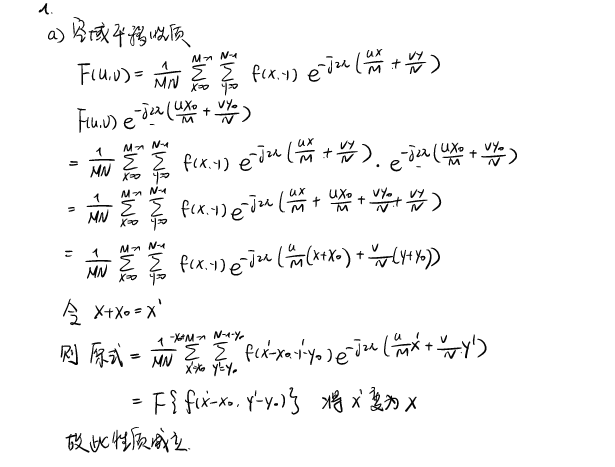 1.
a) 空域平移性质
F(u,v) = 1/MN ∑_{x=0}^{M-1} ∑_{y=0}^{N-1} f(x,y) e^{-j2π(ux/M + vy/N)}
F(u,v) e^{-j2π(ux₀/M + vy₀/N)}
= 1/MN ∑_{x=0}^{M-1} ∑_{y=0}^{N-1} f(x,y) e^{-j2π(ux/M + vy/N)} · e^{-j2π(ux₀/M + vy₀/N)}
= 1/MN ∑_{x=0}^{M-1} ∑_{y=0}^{N-1} f(x,y) e^{-j2π(ux/M + ux₀/M + vy₀/N + vy/N)}
= 1/MN ∑_{x=0}^{M-1} ∑_{y=0}^{N-1} f(x,y) e^{-j2π(u/M(x+x₀) + v/N(y+y₀))}
令 x+x₀=x'
则 原式 = 1/MN ∑_{x'=x₀} ∑_{y'=y₀}^{N-1-y₀} f(x'-x₀, y'-y₀) e^{-j2π(u/M x' + v/N y')}
= F{f(x'-x₀, y'-y₀)} 将 x' 变为 x
故此性质成立.